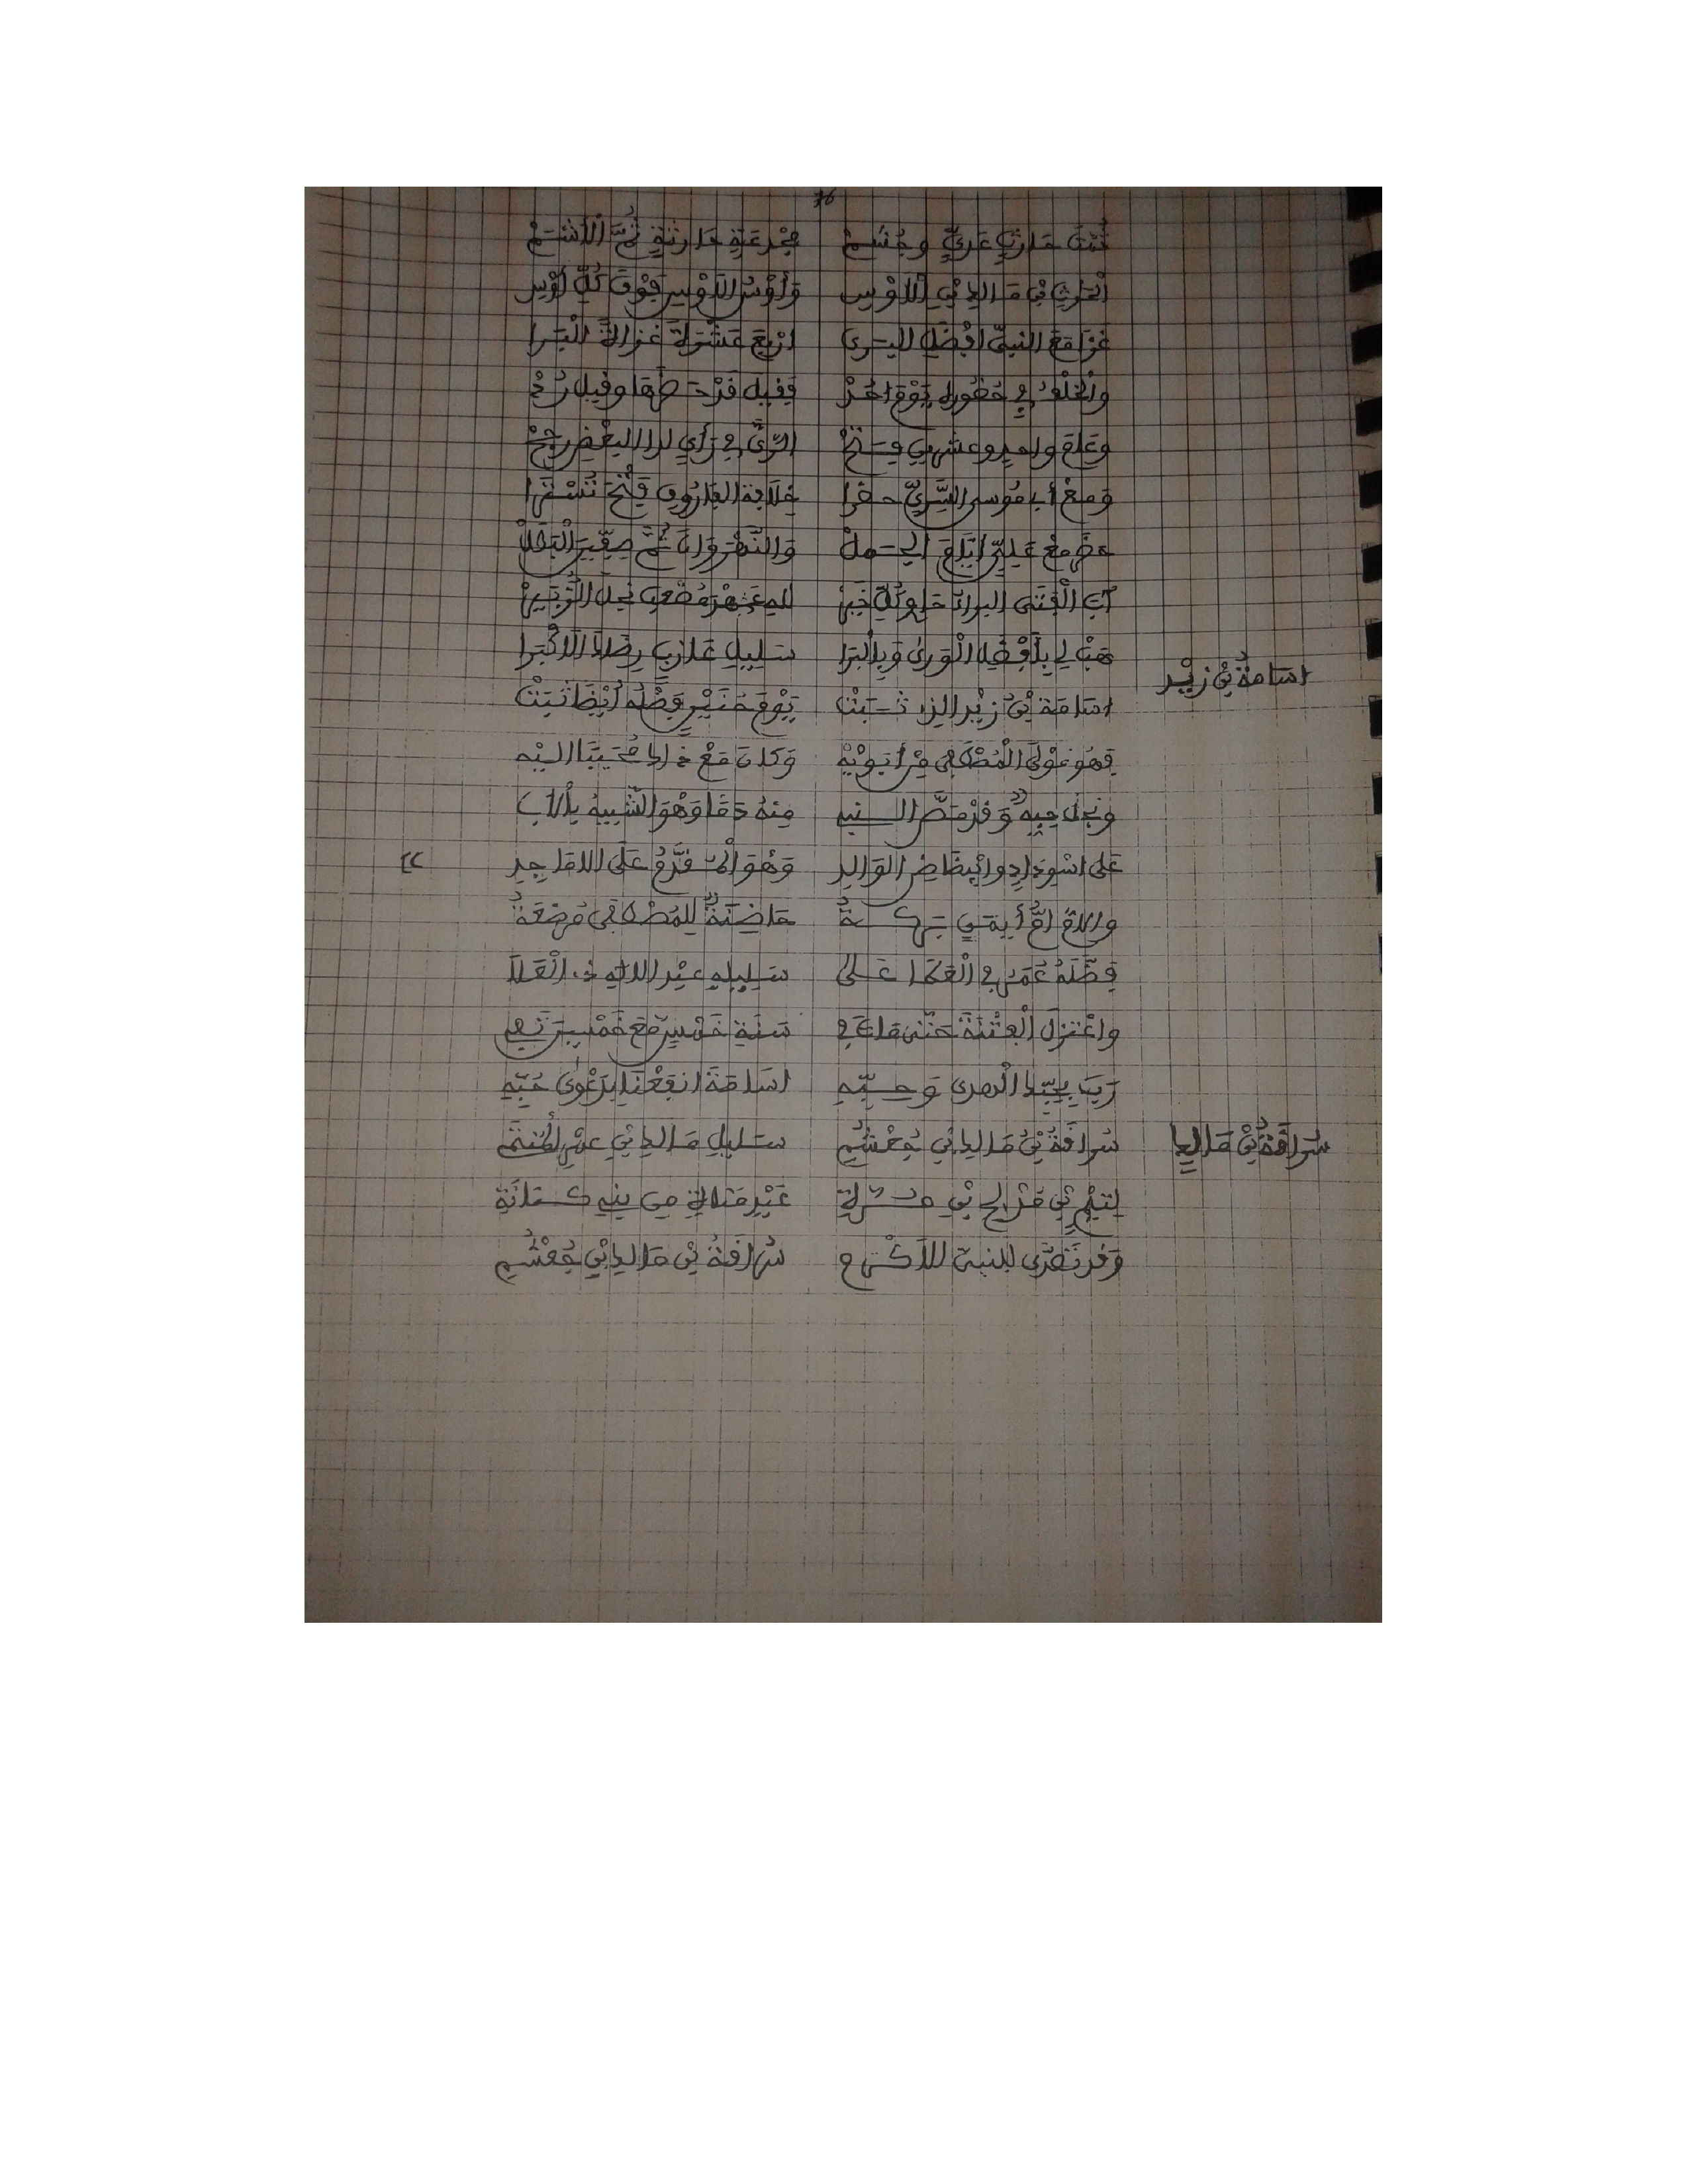 76
ثمت حارث عدي وجشم مجدعة حارثة ثم الأشم
الحرث بن مالك بن الأوس وأوس الأوس فوق كل أوس
غزا مع النبي أفضل السرى أربع عشرة غزاة البرا
والخلف في حضوره يوم أحد فقيل قرح طها وقيل رد
وعام واحد وعشرين فتح الري في رأي لدا البعض رجح
ومع أبي موسى السري حضرا خلافة الفاروق فتح تسترا
حضر مع علي أيام الجمل والنهروان ثم صفين البطل
أب الفتى البراء حاو كل خير للدى عهد مصعب نجل الزبير
هب لي بأفضل الورى وبالبرا سليل عازب رضاك الأكبرا
اسامة بن زيد
اسامة بن زيد الذ ثبت يوم حنين فضله أيضا ثبت
فهو مولى المصطفى من أبويه وكان مع ذاك محببا إليه
ونجل حبه وقد مص النبي منه دما وهو الشبيه بالأب
على اسوداده وابيضاض الوالد وهو المقدم على الاماجد
والام ام أيمن بركة حاضنة للمصطفى مرضعة
فضله عمر في العطا على سليله عبد الاله ذي العلا
واعتزل الفتنة حتى مات في سنة خمس مع خمسين تفي
رب بحب الهدى وحبه اسامة انفعنا بدعوى حبه
سراقة بن مالك
سراقة بن مالك بن جعشم سليل مالك بن عمر المنتم
لتيم بن مدلج بن مرة عبد مناة من بني كنانة
وقد تصدى للنبي الأكرم سراقة بن مالك بن جعشم